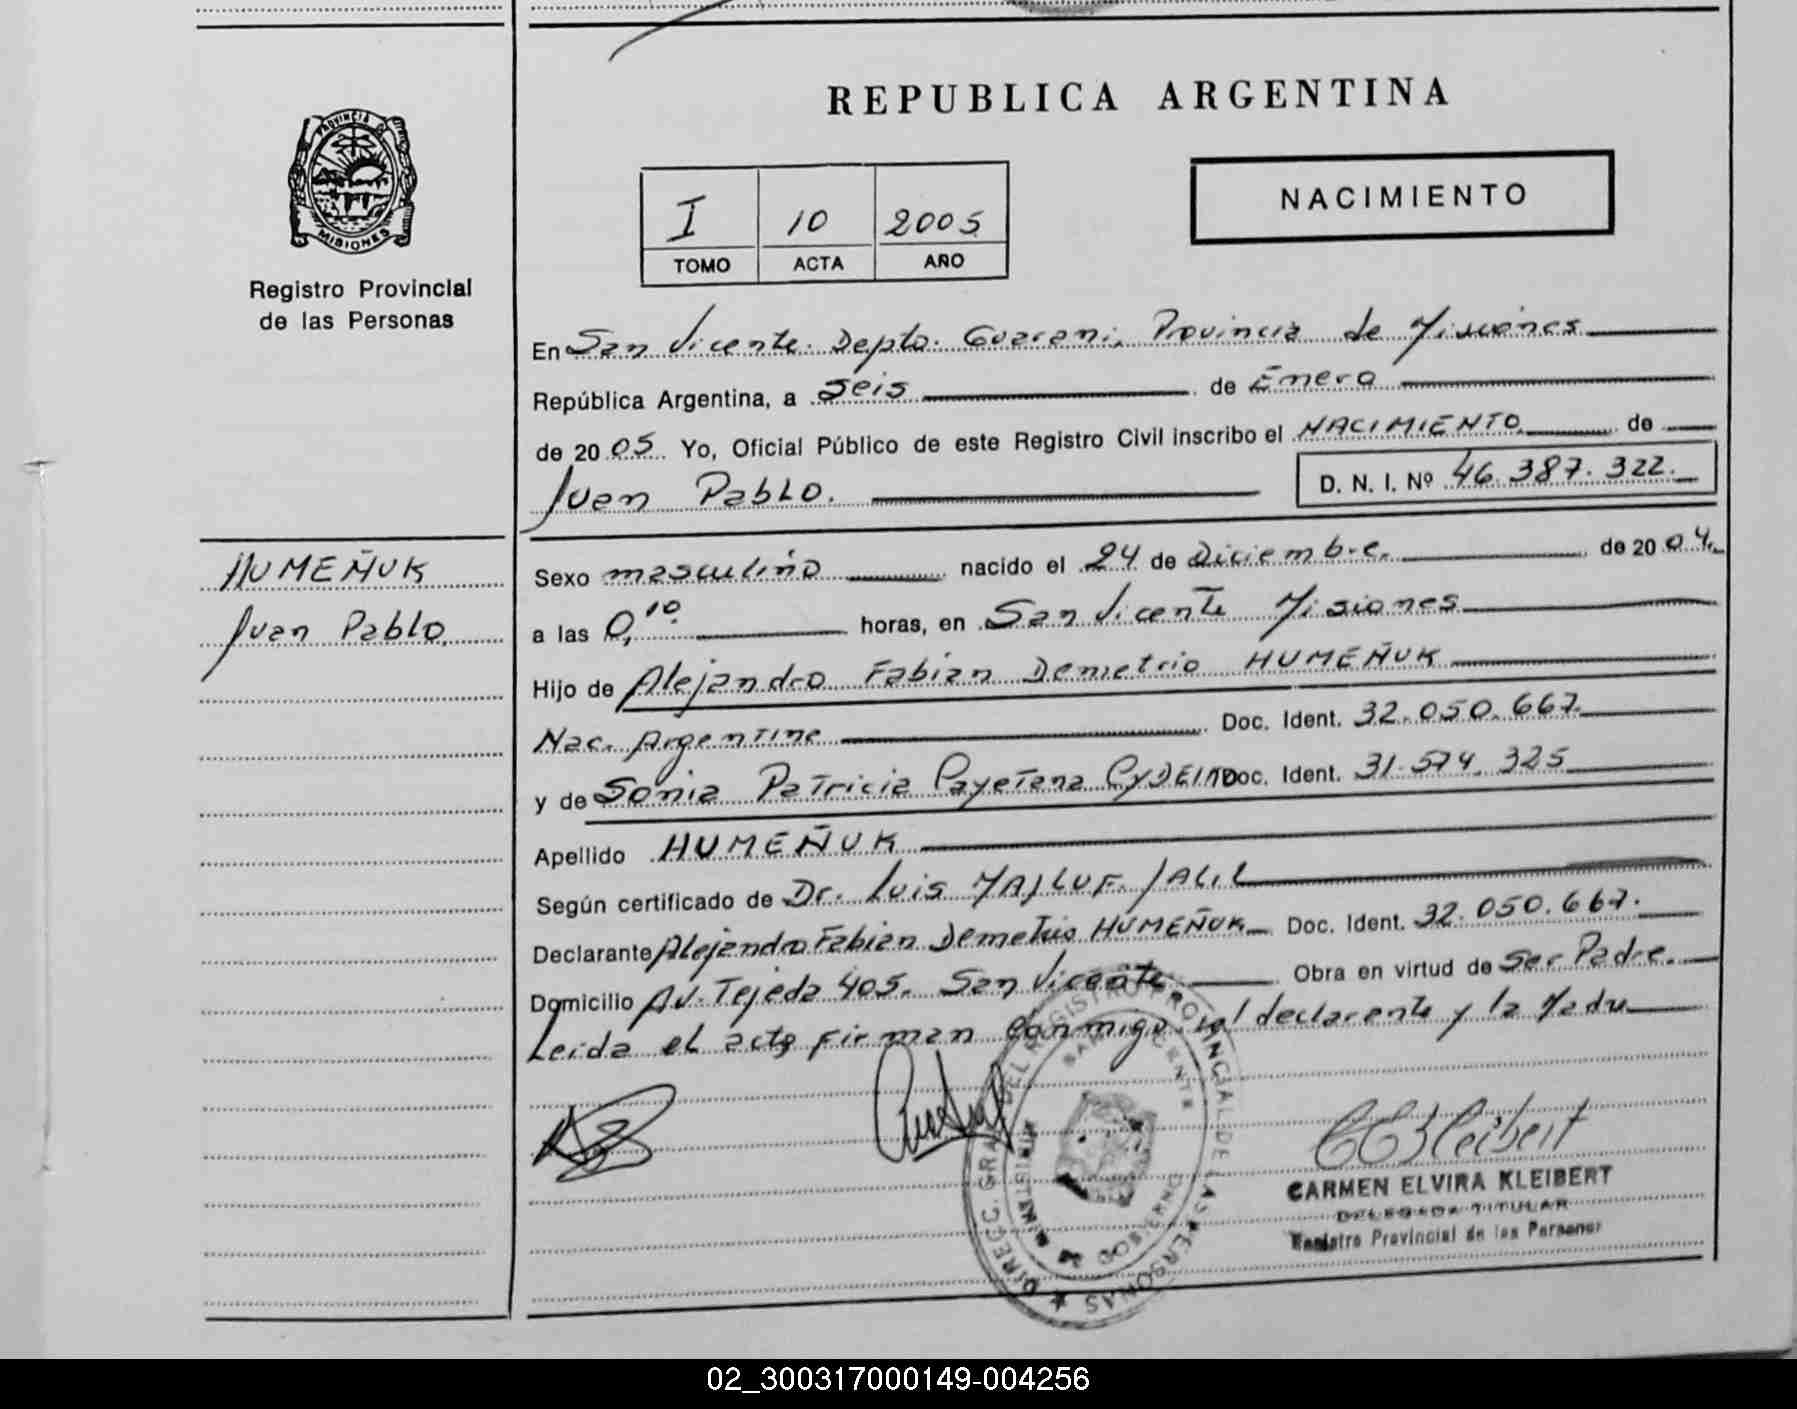 REPUBLICA ARGENTINA
PROVINCIA DE
MISIONES
Registro Provincial
de las Personas
I 10 2005
TOMO ACTA AÑO
NACIMIENTO
En San Vicente. Depto. Guarani, Provincia de Misiones
República Argentina, a seis de Enero
de 20 05 Yo, Oficial Público de este Registro Civil inscribo el NACIMIENTO de
Juan Pablo. D. N. I. Nº 46.387.322.
HUMEÑUK
Juan Pablo
Sexo masculino nacido el 24 de Diciembre. de 20 04.
a las 0,10 horas, en San Vicente Misiones
Hijo de Alejandro Fabian Demetrio HUMEÑUK
Nac. Argentina Doc. Ident. 32.050.667.
y de Sonia Patricia Cayetana Doc. Ident. 31.574.325
Apellido HUMEÑUK
Según certificado de Dr. Luis MAJLUF JALIL
Declarante Alejandro Fabian Demetrio HUMEÑUK Doc. Ident. 32.050.667.
Domicilio Av. Tejeda 405. San Vicente Obra en virtud de Ser Padre.
Leida el acta firman conmigo el declarante y la Madre
DIREC. GRAL DEL REGISTRO PROVINCIAL DE LAS PERSONAS
SAN VICENTE
CEKleibert
CARMEN ELVIRA KLEIBERT
DELEGADA TITULAR
Registro Provincial de las Personas
02_300317000149-004256